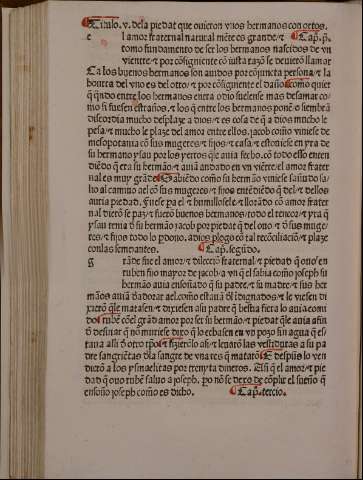 Titulo .v. dela piedat que ouieron vnos hermanos con ottos.
e l amor fraternal natural mēte es grande/ ⁊ Cap. p̄.
tomo fundamento de ser los hermanos nasçidos de vn
vientre/ ⁊ por cōsiguiente cō iusta razō se deuierō llamar
Ca los buenos hermanos son auidos por cōjuncta persona/ ⁊ la
honrra del vno es del otto/ ⁊ por cōsiguiente el daño/ como quier
q̄ qn̄do entre los hermanos entra odio suelense mas desamar co-
mo si fuesen estraños. ⁊ los q̄ entre los hermanos ponē o siembrā
discordia mucho desplaze a dios/ ⁊ es cosa de q̄ a dios mucho le
pesa/ ⁊ mucho le plaze del amor entre ellos. jacob como viniese de
mesopotania cō sus mugeres/ ⁊ fijos ⁊ casa/ ⁊ estouiese en yra de
su hermano ysau por los yerros que auia fecho. cō todo esso enten
diēdo q̄ era su hermāo/ ⁊ auiā andado en vn viētre/ el amor frater
nal es muy grāde Sabiēdo como su hermāo viniese sañudo sa-
lio al camino a el cō sus mugeres/ ⁊ fijos entēdiēdo q̄ del/ ⁊ dellos
auria piedad. Fuese pa el ⁊ humillosele/ ⁊ llorādo cō amor frater
nal dierō se paz/ ⁊ fuerō buenos hermanos/ todo el rencor ⁊ yra q̄
ysau tenia a su hermāo jacob por piedat q̄ del ouo/ ⁊ d̄ sus muge-
res/ ⁊ fijos todo lo p̄dono. a dios plego cō tal recōciliaciō/ ⁊ plaze
con las semejantes. Cap. segūdo.
g rāde fue el amor/ ⁊ dilectiō fraternal/ ⁊ piedad q̄ ouo en
ruben fijo mayor de jacob/ a vn q̄ el sabia como joseph su
hermāo auia ensoñado q̄ su padre/ ⁊ su madre/ ⁊ sus her
manos auiā d̄ adorar a el. como estauā d̄l indignados/ ⁊ le viesen d̄
dixierō q̄ le matasen/ ⁊ dixiesen a su padre q̄ bestia fiera lo auia comi
do ruben cō el grād amor por ser su hermāo/ ⁊ piedat q̄ le auia a fin
d̄ desuiar q̄ nō muriese dixo q̄ lo echasen en vn pozo sin agua q̄ es-
taua alli d̄ otro tp̄o/ ⁊ fizierōlo asi/ ⁊ leuarō las vestiduras a su pa
dre sangriētas d̄la sangre de vna res q̄ matarō E despues lo ven
dierō a los ysmaelitas por treynta dineros. Asi q̄ el amor/ ⁊ pie
dad q̄ ouo rubē saluo a joseph. po nō se dexo de cōplir el sueño q̄
ensoño joseph como es dicho. Cap. tercio.